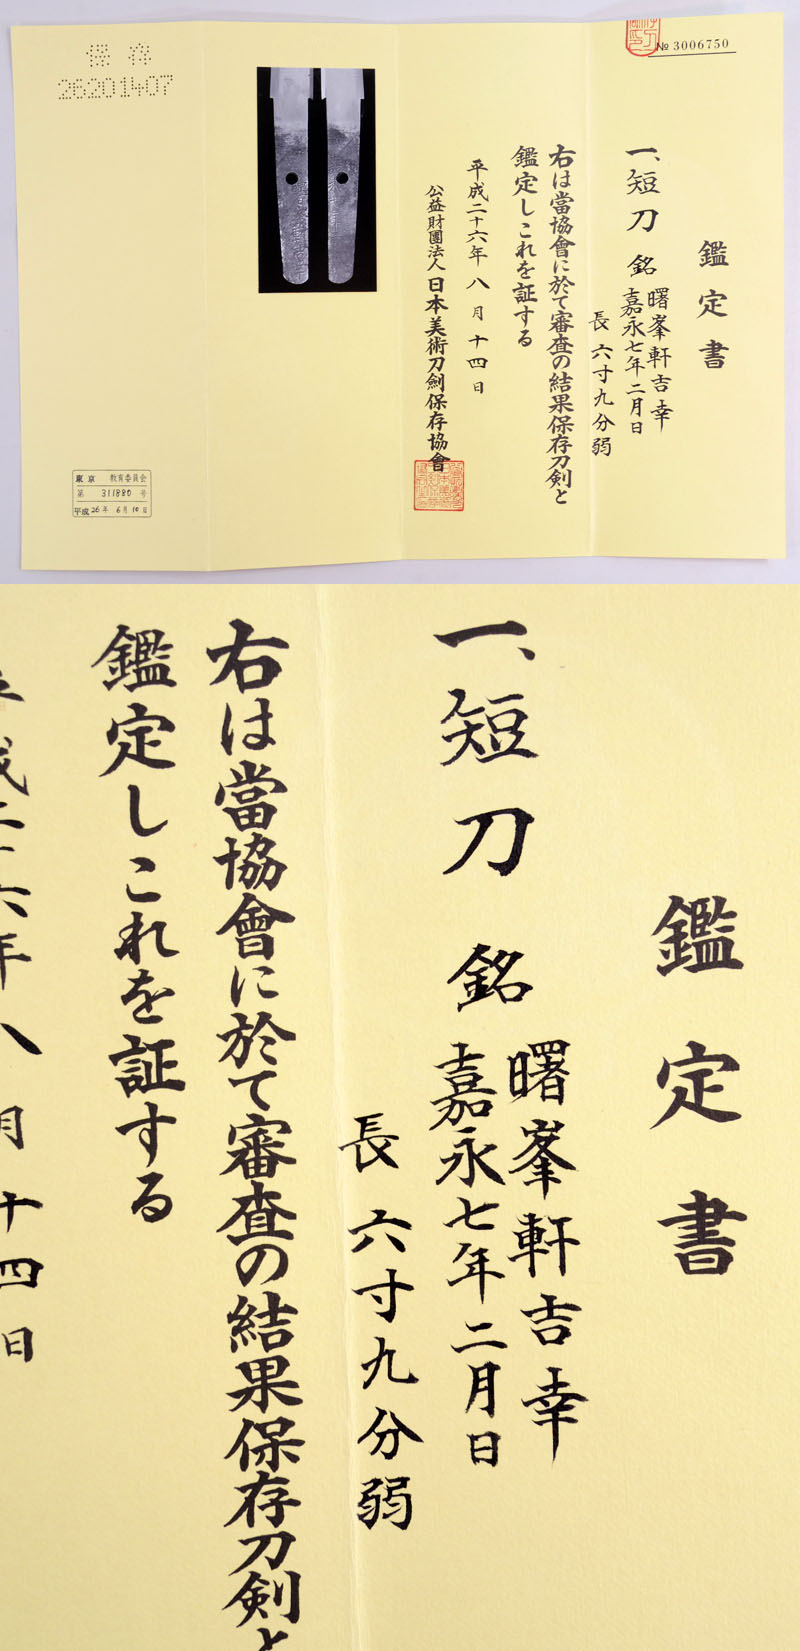 № 3006750
鑑定書
一、短刀 銘 曙峯軒吉幸
嘉永七年二月日
長 六寸九分弱
右は當協會に於て審査の結果保存刀剣と
鑑定しこれを証する
平成二十六年八月十四日
公益財團法人 日本美術刀劍保存協會
保存
26201407
東京 教育委員会
第 311880 号
平成 26年 6月 10日
鑑定書
一、短刀 銘 曙峯軒吉幸
嘉永七年二月日
長 六寸九分弱
右は當協會に於て審査の結果保存刀剣と
鑑定しこれを証する
平成二十六年八月十四日